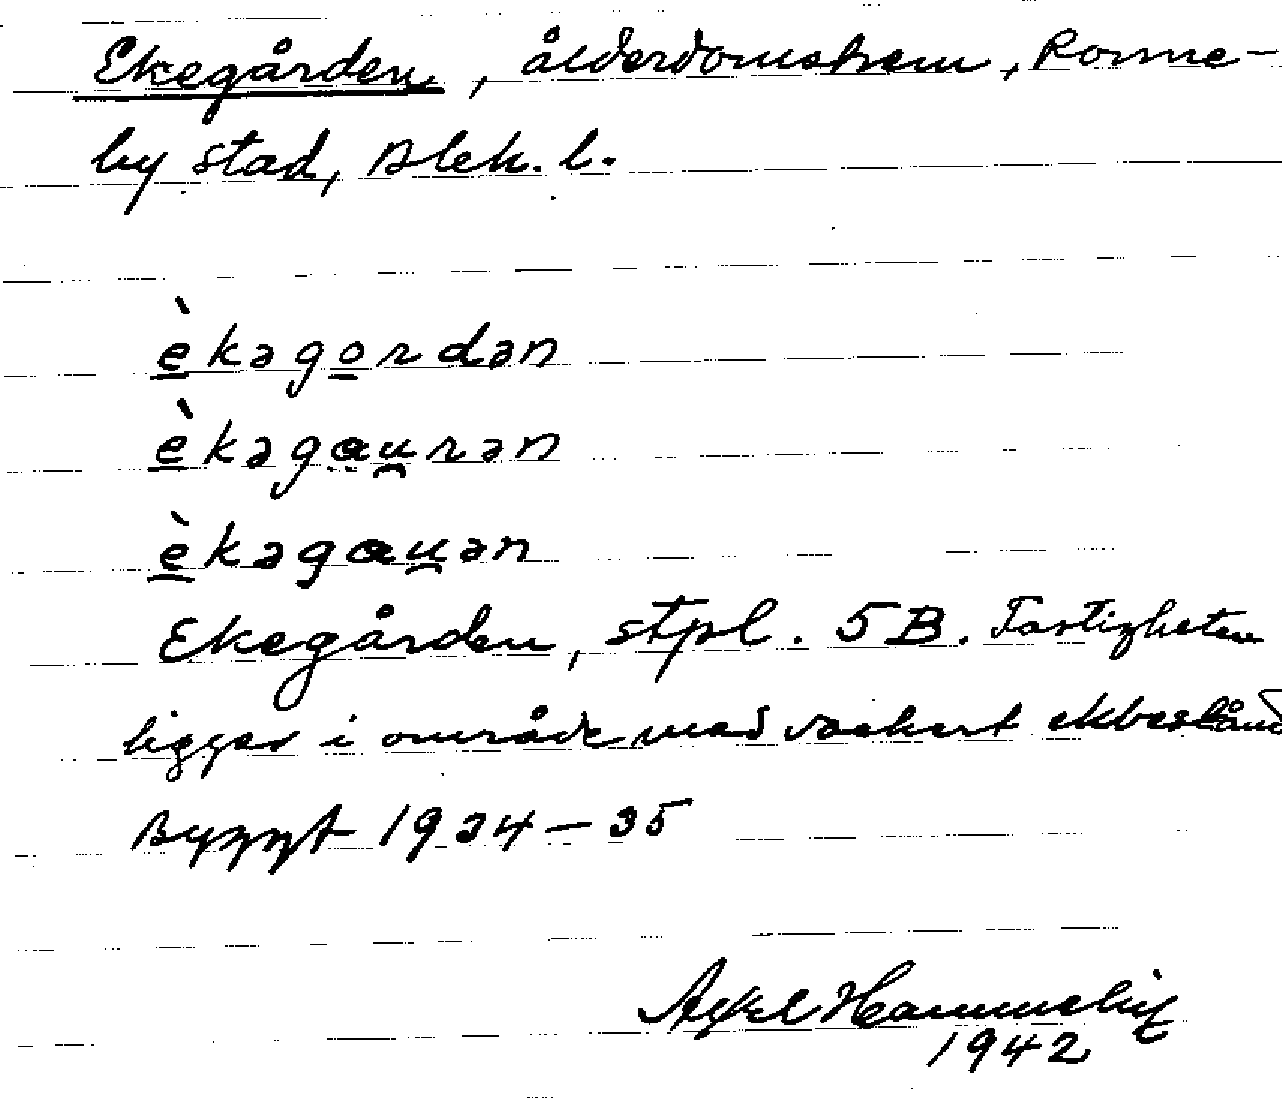 Ekegården, ålderdomshem, Ronne-
by stad, Blek. l.
èkəgo̲rdən
èkəgau̯rən
èkəgau̯ən
Ekegården, stpl. 5B. Fastigheten
ligger i område med vackert ekbestånd
Byggt 1934–35
Axel
1942